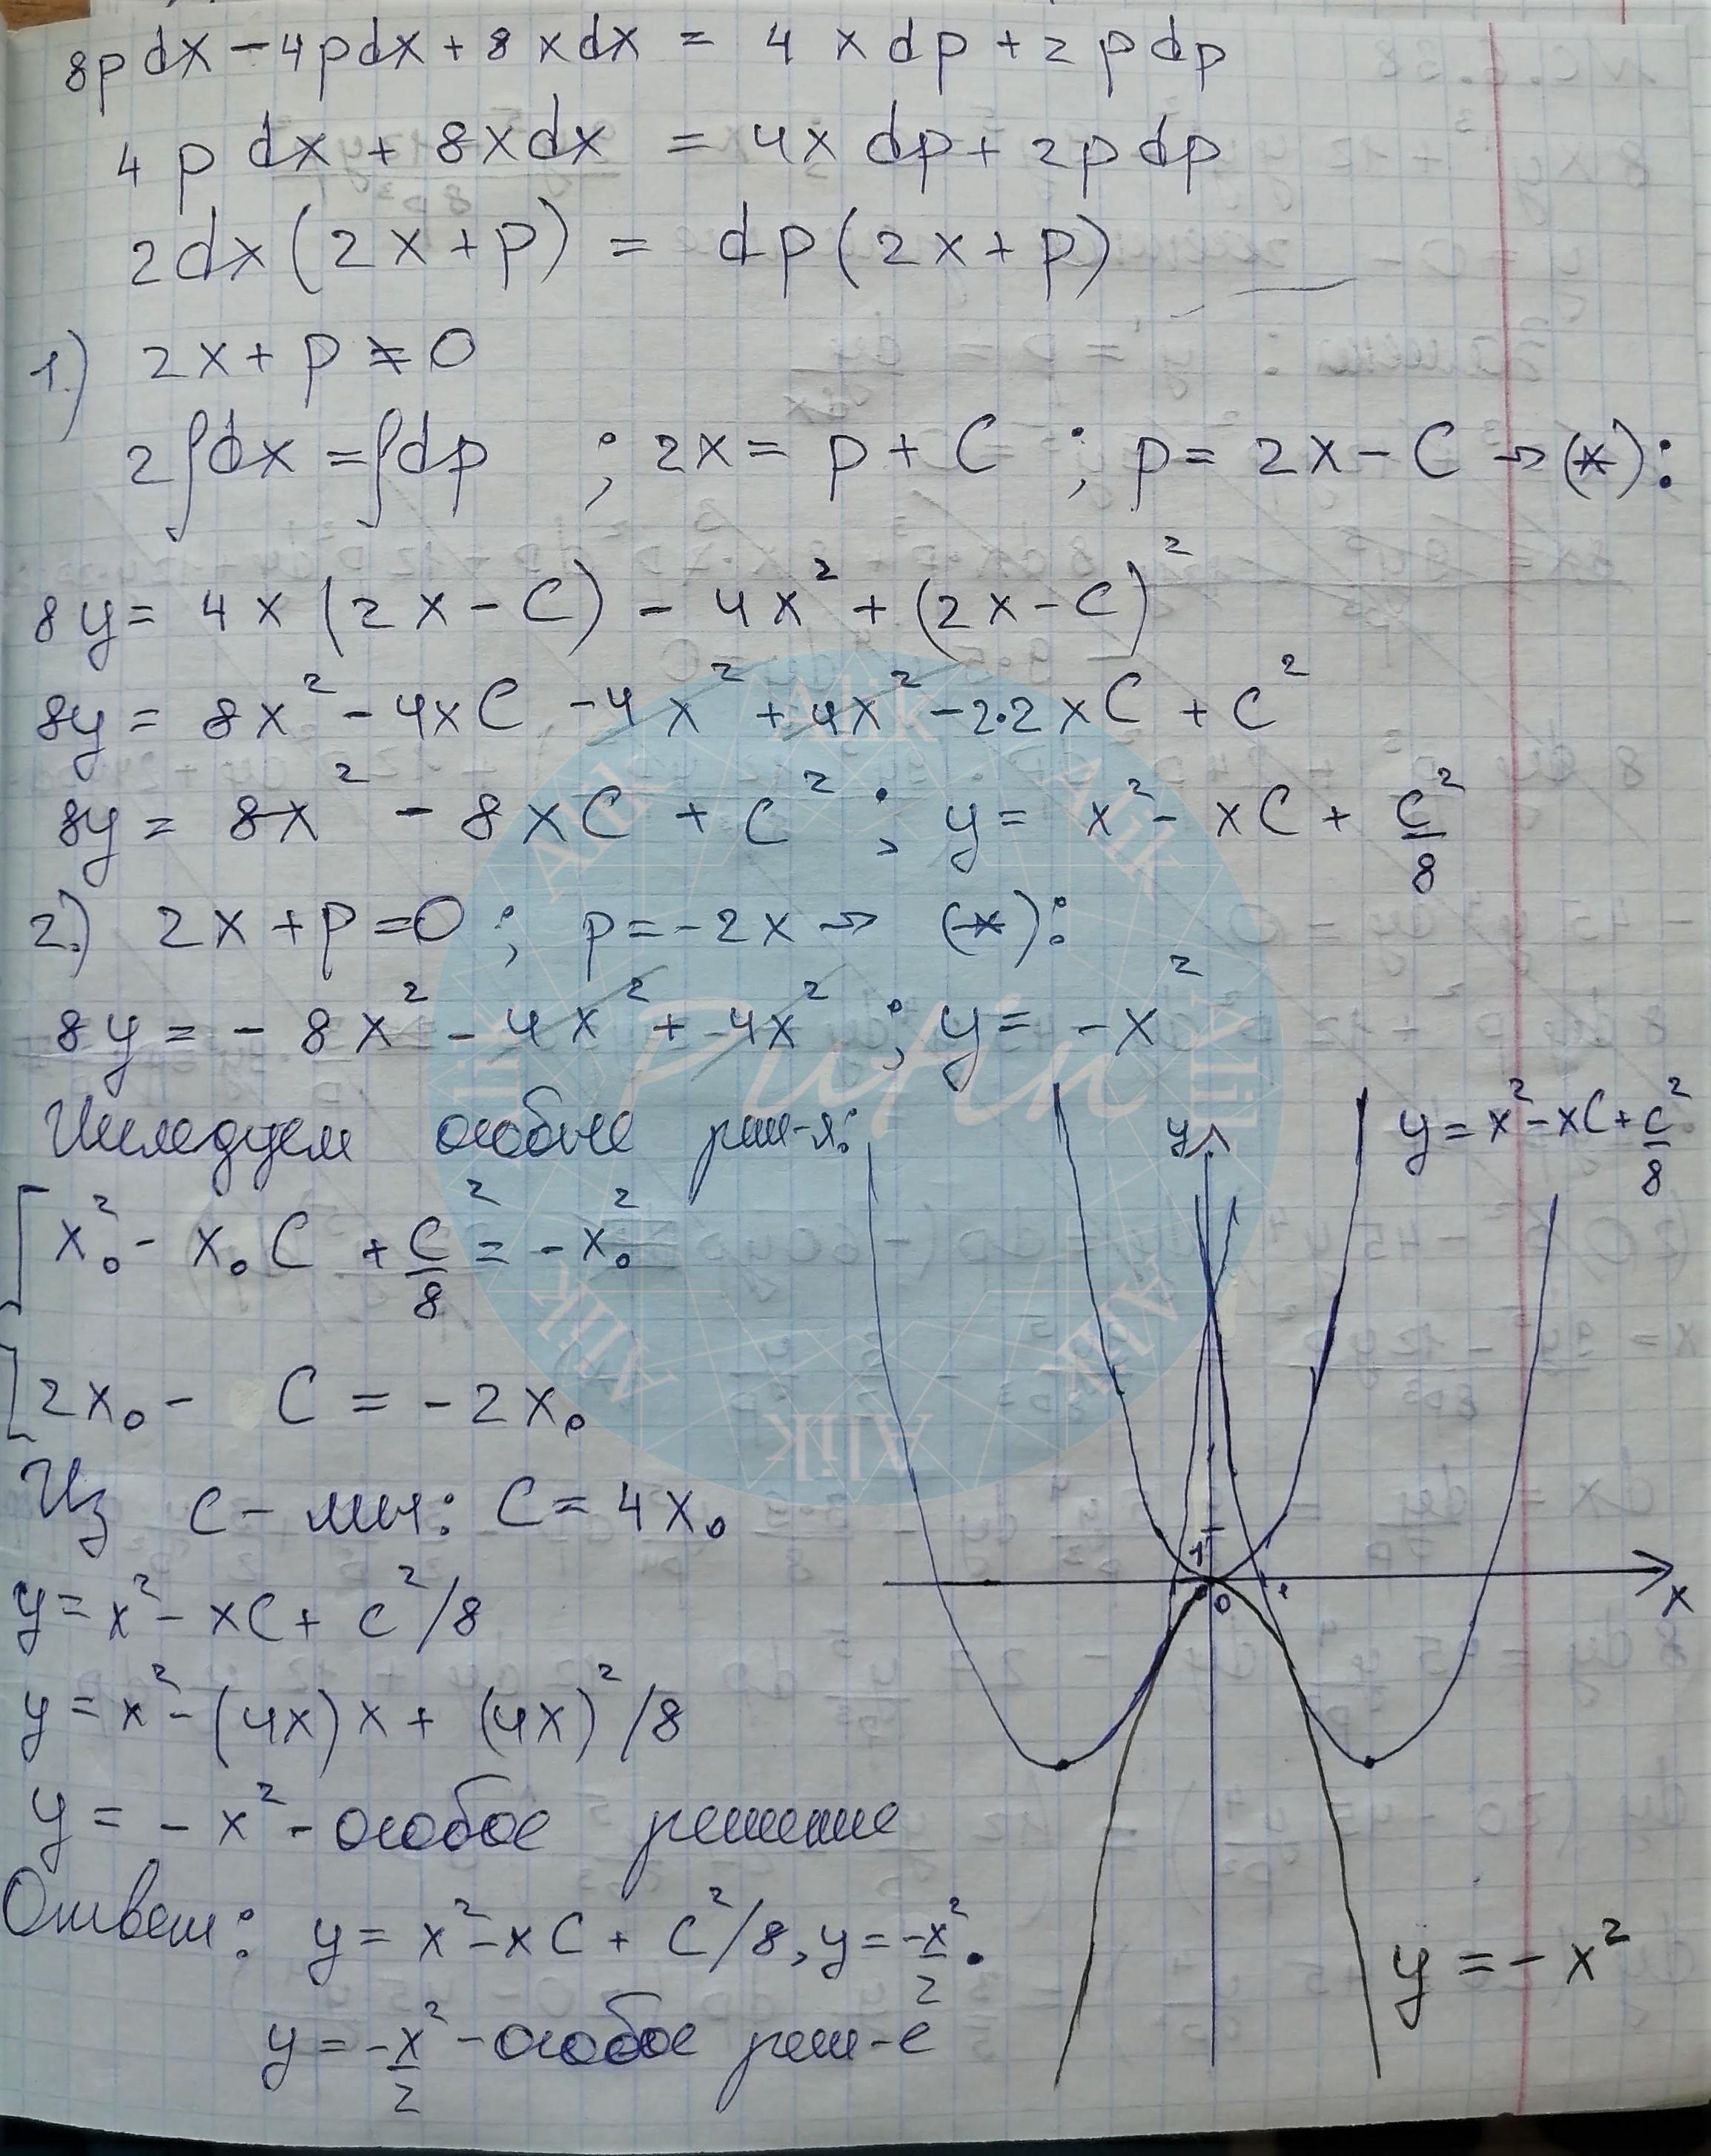 8pdx − 4pdx + 8xdx = 4xdp + 2pdp
4pdx + 8xdx = 4xdp + 2pdp
2dx(2x+p) = dp(2x+p)
1.) 2x+p ≠ 0
2∫dx = ∫dp ; 2x = p + C ; p = 2x − C → (*):
8y = 4x(2x − C) − 4x² + (2x − C)²
8y = 8x² − 4xC − 4x² + 4x² − 2·2xC + C²
8y = 8x² − 8xC + C² ; y = x² − xC + C²/8
2.) 2x+p = 0 ; p = −2x → (*):
8y = −8x² − 4x² + 4x² ; y = −x²
Исследуем особые реш-я:
x₀² − x₀C + C²/8 = −x₀²
2x₀ − C = −2x₀
Из с-мы: C = 4x₀
y = x² − xC + C²/8
y = x² − (4x)x + (4x)²/8
y = −x² − особое решение
Ответ: y = x² − xC + C²/8, y = −x²/2.
y = −x²/2 − особое реш-е
y = x² − xC + C²/8
y
1
0
x
y = −x²
Putin
Alik Alik Alik Alik Alik Alik Alik Alik